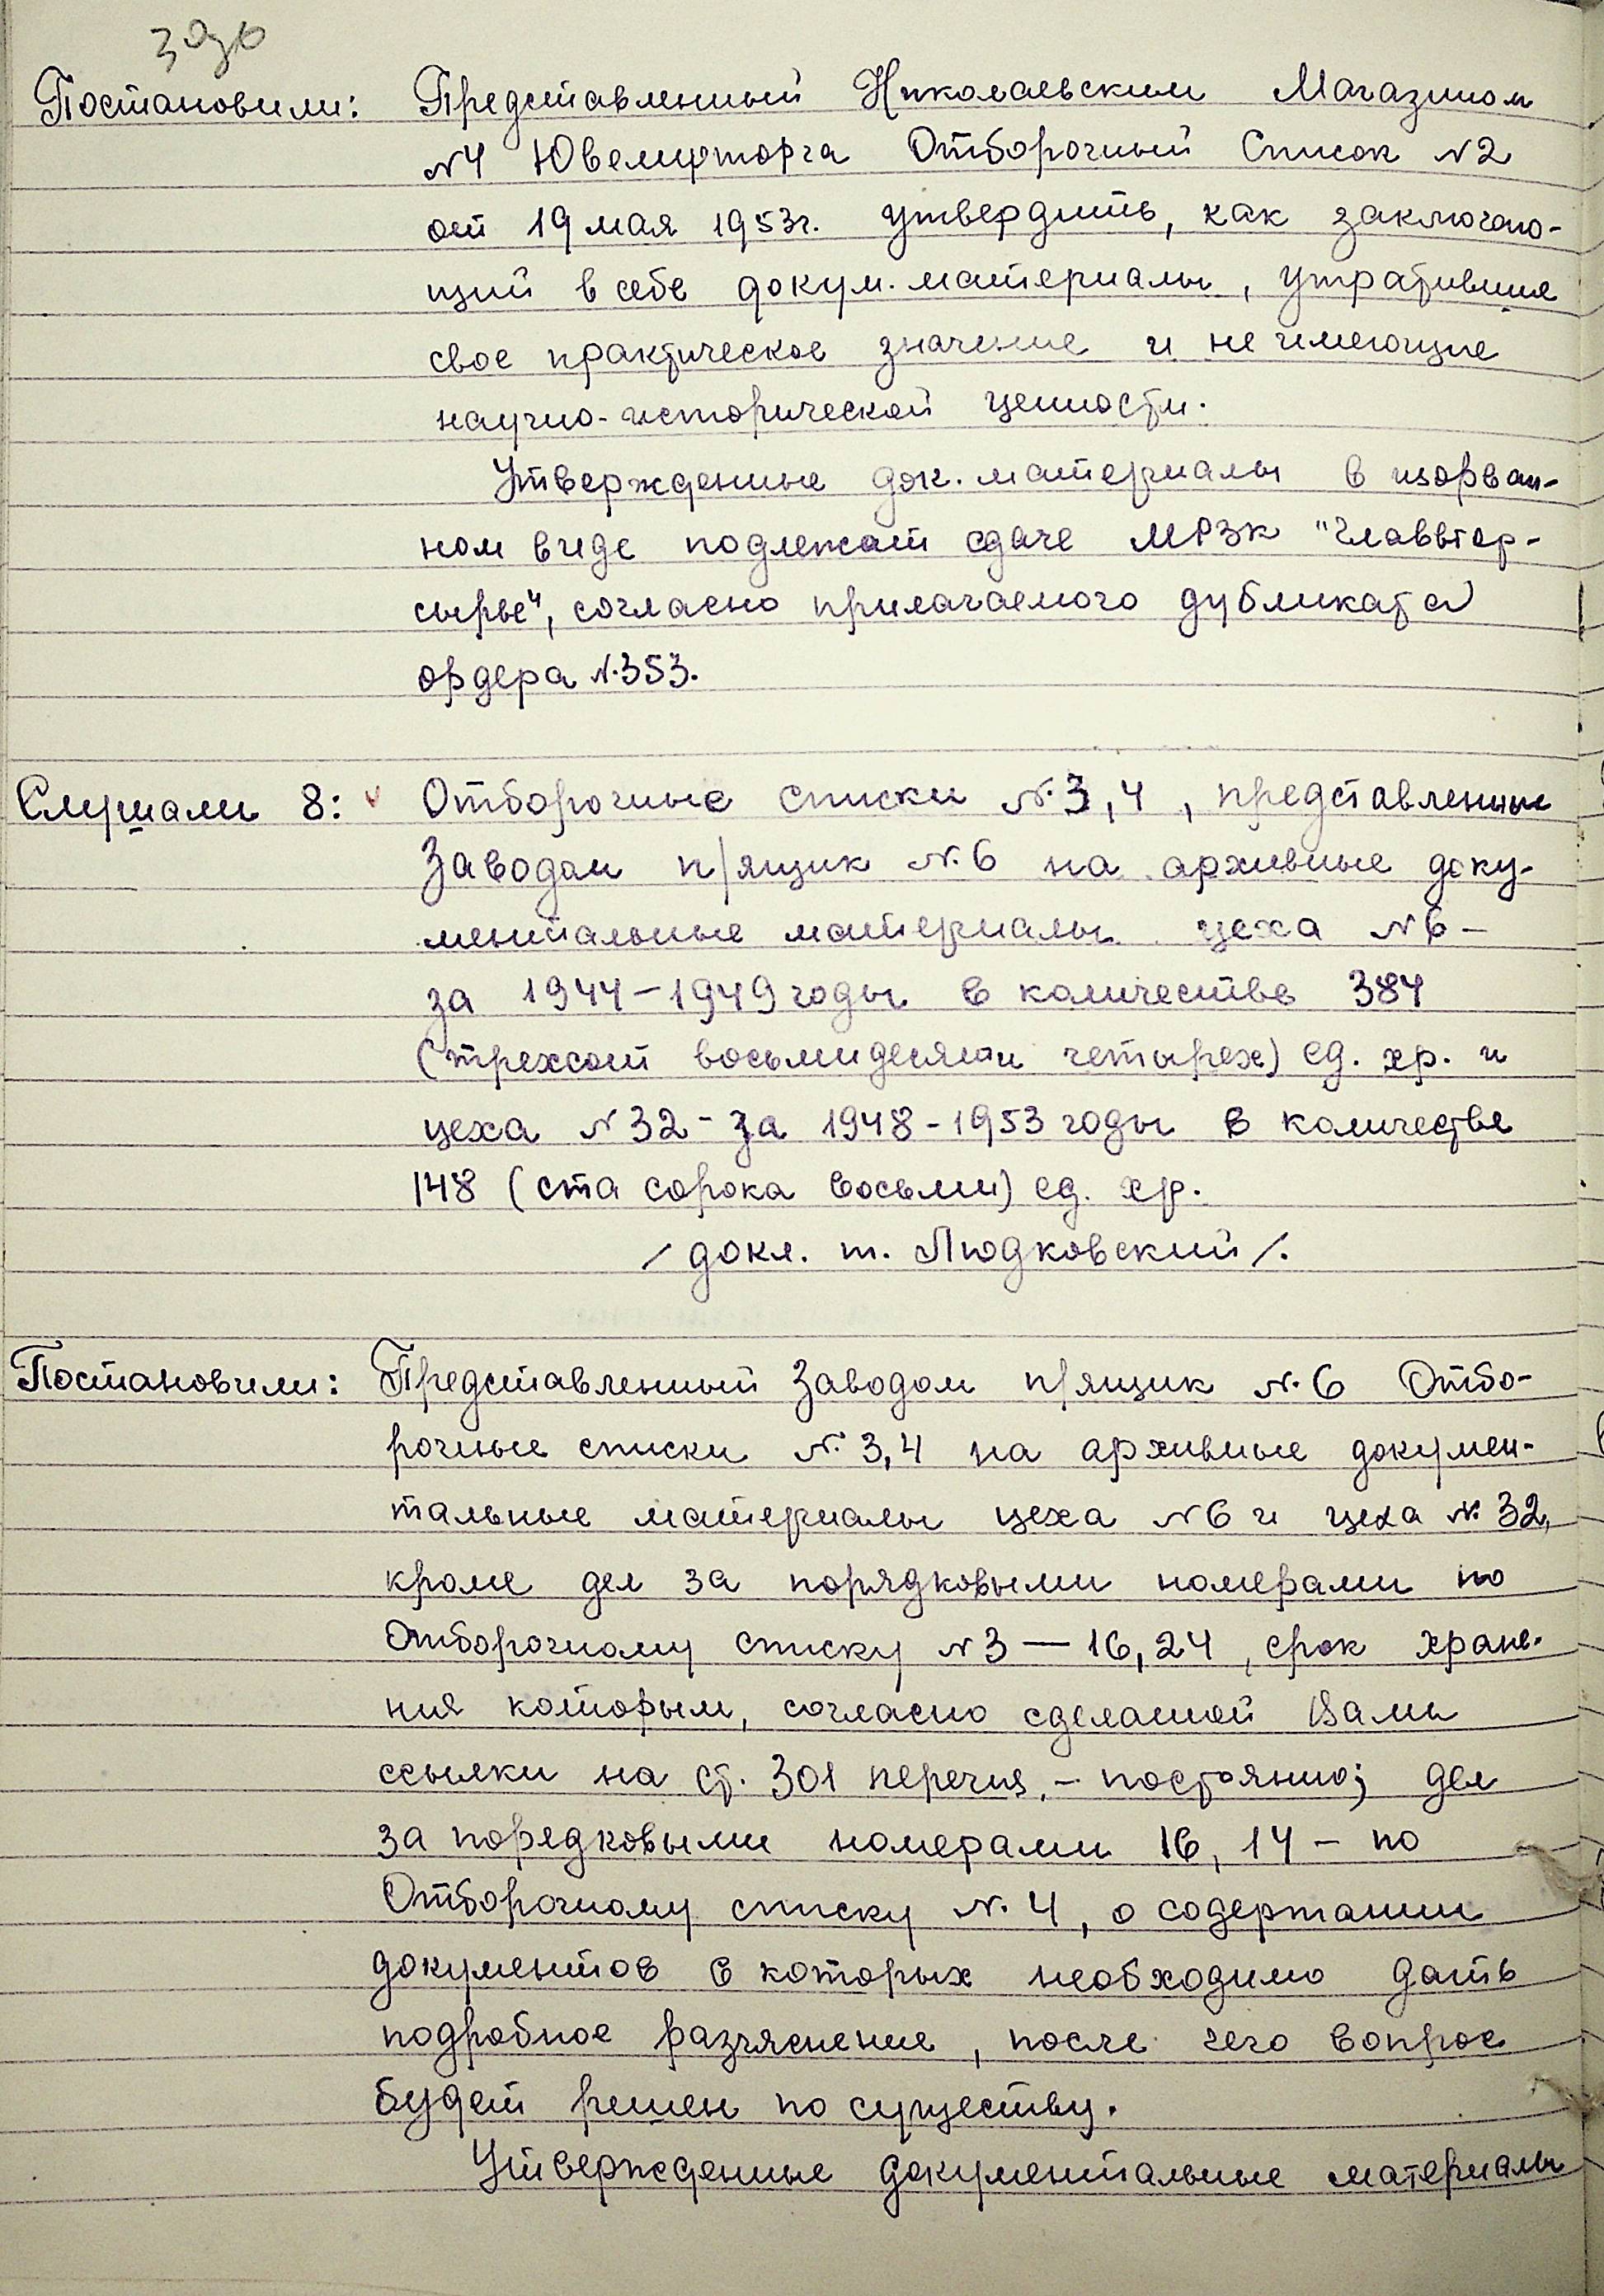 Постановили: Представленный Николаевским Магазином
№4 Ювелирторга Отборочный Список №2
от 19 мая 1953г. утвердить, как заключаю-
щий в себе докум. материалы, утратившие
свое практическое значение и не имеющие
научно-исторической ценности.
Утвержденные док. материалы в изорван-
ном виде подлежат сдаче МРЗК "Главвтор-
сырье", согласно прилагаемого дубликата
ордера №353.
Слушали 8: Отборочные списки №3,4, представленные
Заводом п/ящик №6 на архивные доку-
ментальные материалы цеха №6 –
за 1944–1949 годы в количестве 384
(трехсот восьмидесяти четырех) ед. хр. и
цеха №32 – за 1948-1953 годы в количестве
148 (ста сорока восьми) ед. хр.
/ докл. т. Людковский /.
Постановили: Представленный Заводом п/ящик №6 Отбо-
рочные списки №3,4 на архивные докумен-
тальные материалы цеха №6 и цеха №32,
кроме дел за порядковыми номерами по
Отборочному списку №3 — 16,24, срок хране-
ния которым, согласно сделанной Вами
ссылки на ст. 301 перечня, – постоянно; дел
за порядковыми номерами 16, 14 – по
Отборочному списку №4, о содержании
документов в которых необходимо дать
подробное разъяснение, после чего вопрос
будет решен по существу.
Утвержденные документальные материалы